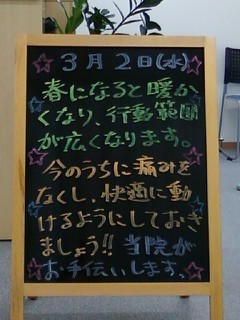 3月2日(水)
春になると暖か
くなり、行動範囲
が広くなります。
今のうちに痛みを
なくし、快適に動
けるようにしておき
ましょう!! 当院が
お手伝いします。